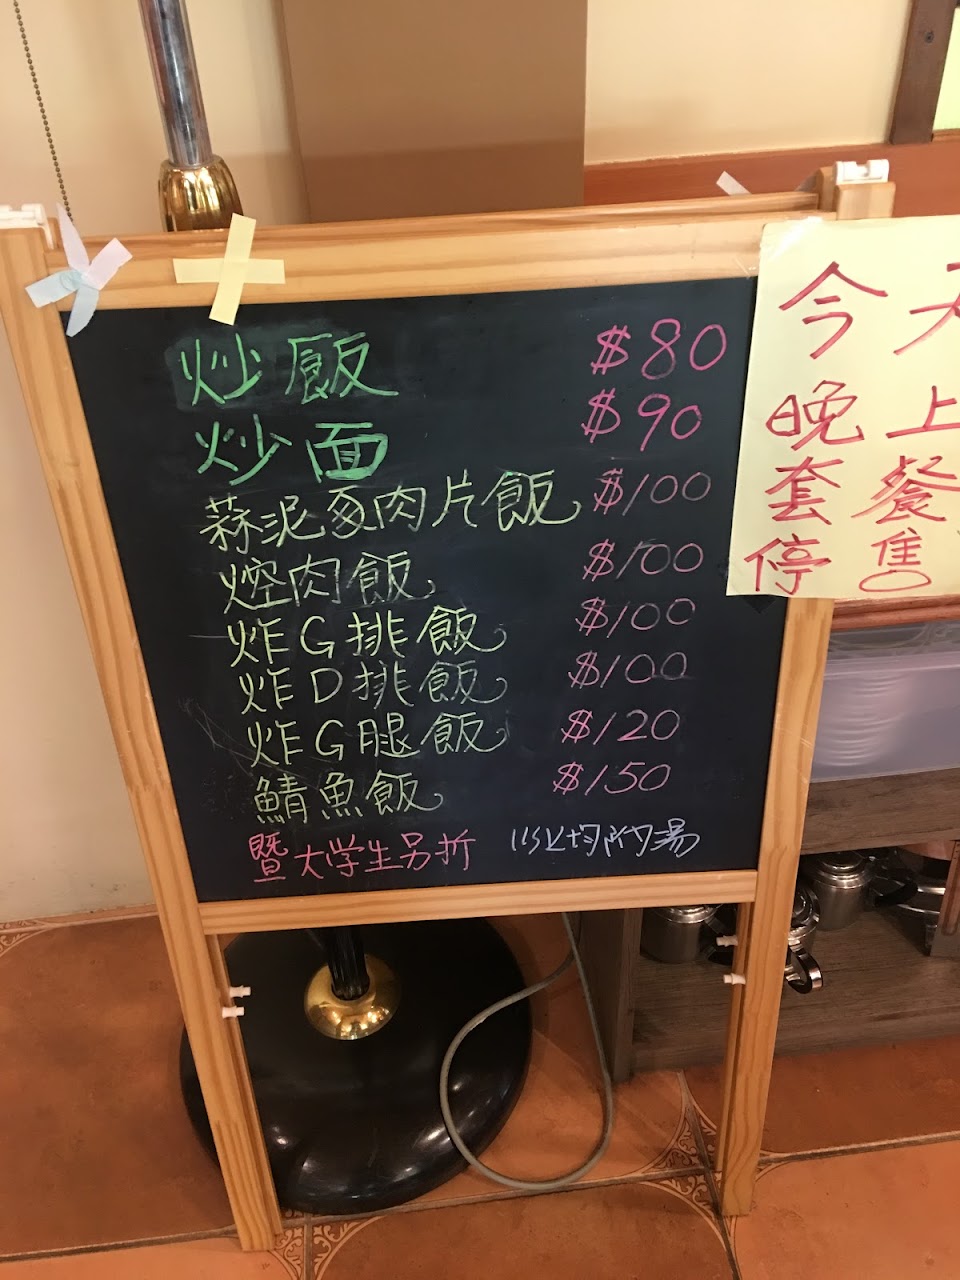 炒飯 $80
炒面 $90
蒜泥豕肉片飯 $100
焢肉飯 $100
炸G排飯 $100
炸D排飯 $100
炸G腿飯 $120
鯖魚飯 $150
暨大学生另折 以上均附湯
今天
晚上
套餐
停售